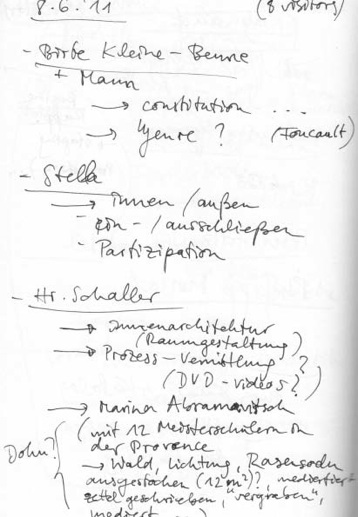 8.6.'11 (8 visitors)
- Birte Kleine-Benne
+ Mann
→ constitution ...
→ Genre ? (Foucault)
- Stella
→ innen / außen
- ein- / ausschließen
- Partizipation
- Hr. Schaller
→ Innenarchitektur
(Raumgestaltung)
→ Prozess-Vermittlung ?
(DVD-videos?)
→ Marina Abramovitsch
(mit 12 Meisterschülern in
der Provence
Dohn? → Wald, Lichtung, Rasensoden
ausgestochen (12 m²)?, mediertiert
zettel geschrieben, "vergraben",
mediert